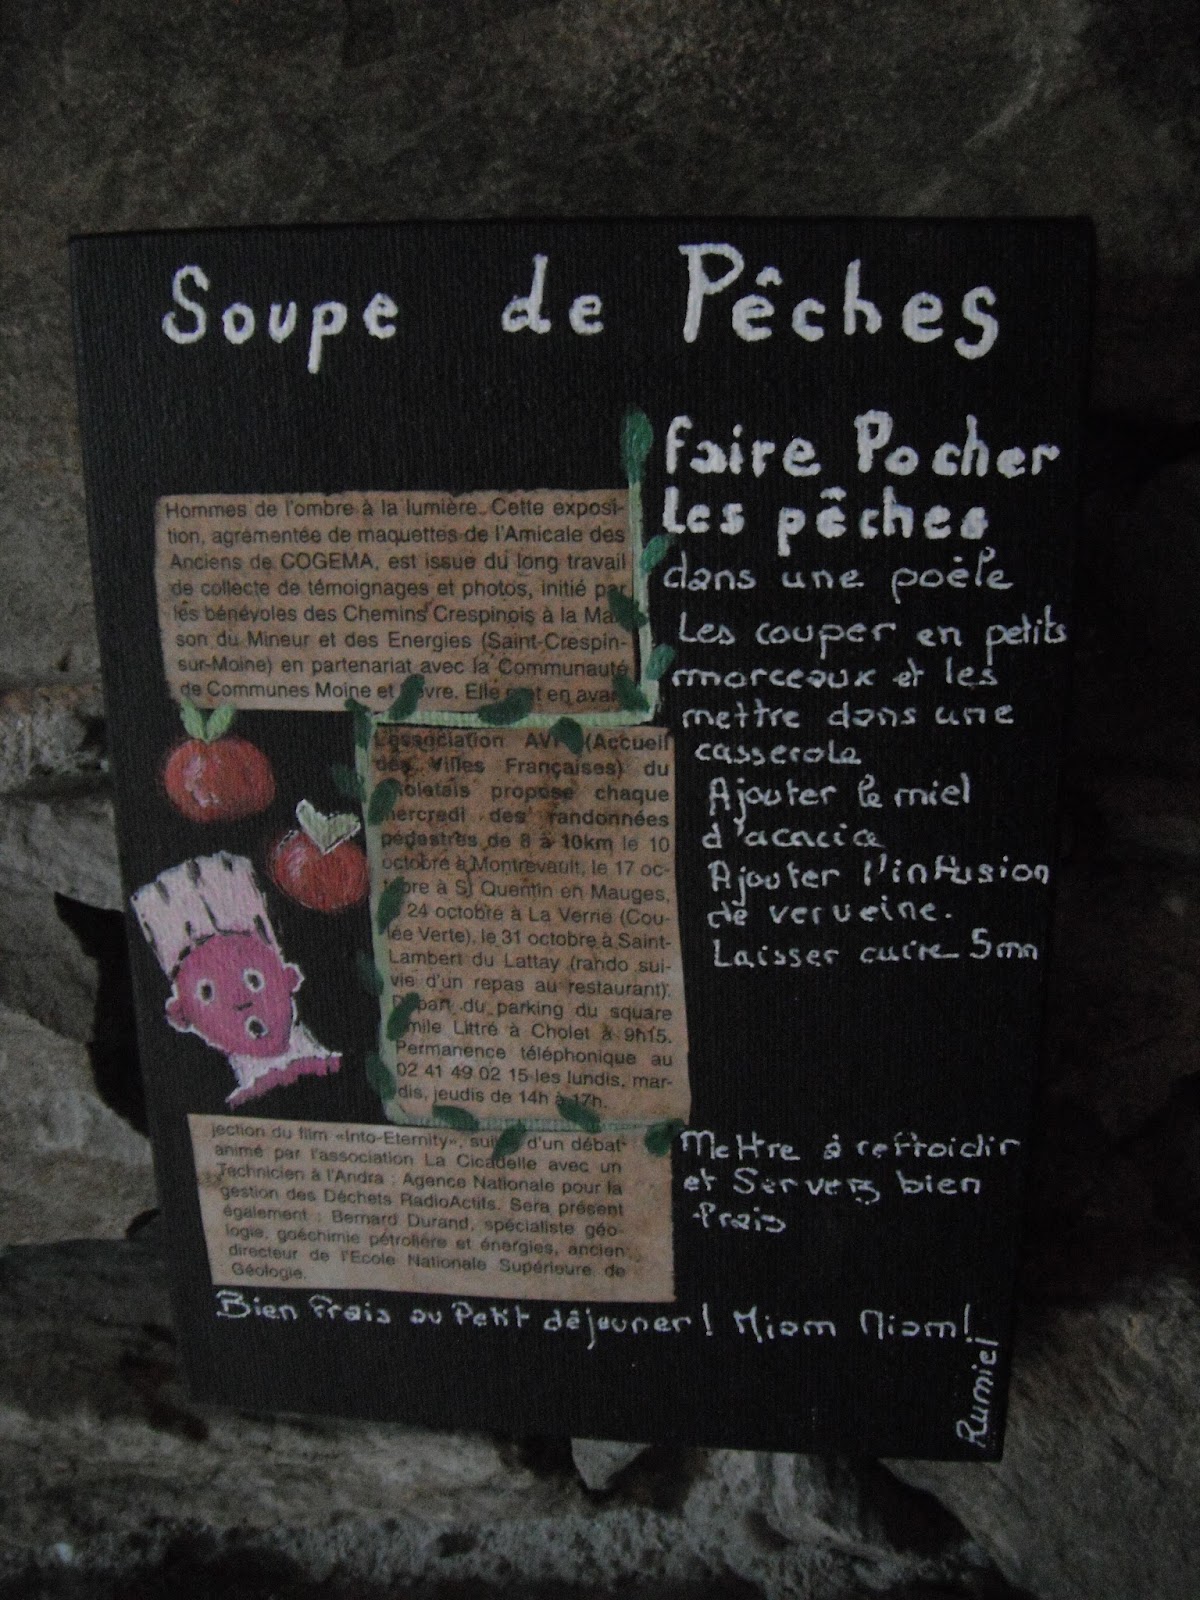 Soupe de Pêches
faire Pocher
les pêches
dans une poèle
Les couper en petits
morceaux et les
mettre dans une
casserole
Ajouter le miel
d'acacia
Ajouter l'infusion
de verveine.
Laisser cuire 5mn
Hommes de l'ombre à la lumière. Cette exposi-
tion, agrémentée de maquettes de l'Amicale des
Anciens de COGEMA, est issue du long travail
de collecte de témoignages et photos, initié par
les bénévoles des Chemins Crespinois à la Mai
son du Mineur et des Energies (Saint-Crespin-
sur-Moine) en partenariat avec la Communauté
de Communes Moine et Elle en avan
L'association (Accueil
des Villes Françaises) du
propose chaque
mercredi des randonnées
pédestres de 8 à 10km le 10
octobre à Montrevault, le 17 oc-
tobre à St Quentin en Mauges,
24 octobre à La Verrie (Cou-
lée Verte), le 31 octobre à Saint-
Lambert du Lattay (rando sui-
vie d'un repas au restaurant).
Départ du parking du square
mile Littré à Cholet à 9h15.
Permanence téléphonique au
02 41 49 02 15 les lundis, mar-
dis, jeudis de 14h à 17h.
jection du film «Into-Eternity», d'un débat
animé par l'association La Cicadelle avec un
Technicien à l'Andra : Agence Nationale pour la
gestion des Déchets RadioActifs. Sera présent
également : Bernard Durand, spécialiste géo-
logie, goéchimie pétrolière et énergies, ancien
directeur de l'Ecole Nationale Supérieure de
Géologie.
Mettre à reftoidir
et Servers bien
frais
Bien frais au Petit déjeuner! Miam Miam!
Rumiel